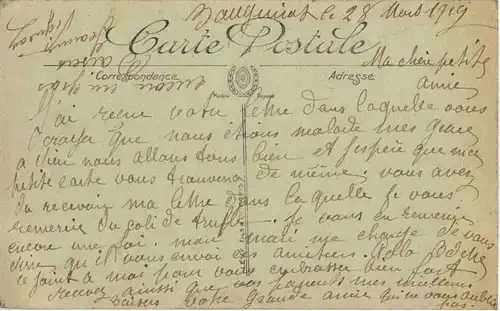 le 28 Mars 1919
Carte Postale
Correspondance
Adresse
Ma chère petite
amie
J'ai reçue votre lettre dans laquelle vous
que nous étions malade mes grace
a Dieu nous allons tous bien et j'espère que ma
petite carte vous trouvera de même. vous avez
du recevoir ma lettre dans laquelle je vous
remercie du coli de truffe. je vous en remercie
encore une foi. mon mari me charge de vous
dire qu'il vous envoi ces amitiers.
ce joint a moi pour vous embrasser bien fort
recevez ainsi que vos parents mes meilleurs
baisers votre grande amie qui ne vous oublie
pas.
encore un gros